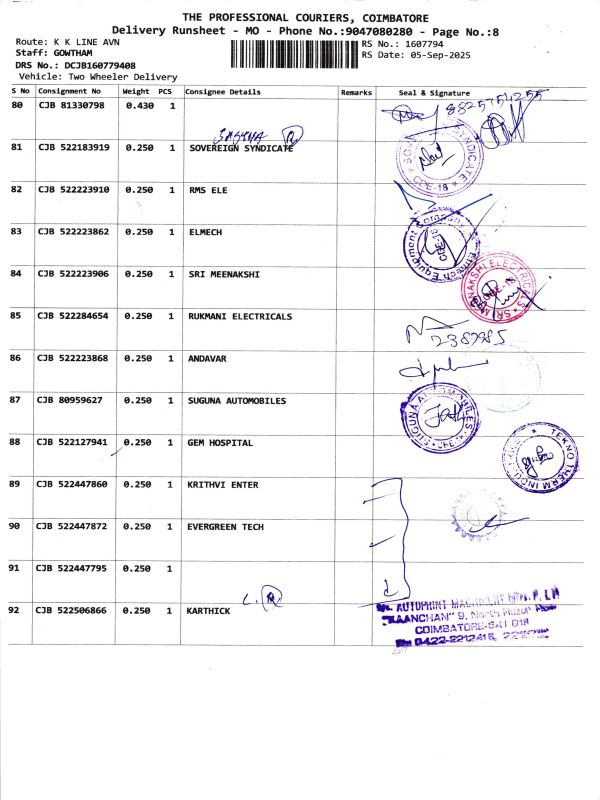 THE PROFESSIONAL COURIERS, COIMBATORE
Delivery Runsheet - MO - Phone No.:9047080280 - Page No.:8
Route: K K LINE AVN
RS No.: 1607794
Staff: GOWTHAM
RS Date: 05-Sep-2025
DRS No.: DCJB160779408
Vehicle: Two Wheeler Delivery
S No Consignment No Weight PCS Consignee Details Remarks Seal & Signature
80 CJB 81330798 0.430 1 8825754255
81 CJB 522183919 0.250 1 SOVEREIGN SYNDICATE
SYNDICATE
CBE-18
82 CJB 522223910 0.250 1 RMS ELE
83 CJB 522223862 0.250 1 ELMECH
Elmech Equipment Company
84 CJB 522223906 0.250 1 SRI MEENAKSHI
SRI MEENAKSHI ELECTRICALS
85 CJB 522284654 0.250 1 RUKMANI ELECTRICALS
2387985
86 CJB 522223868 0.250 1 ANDAVAR
87 CJB 80959627 0.250 1 SUGUNA AUTOMOBILES
SUGUNA AUTOMOBILES
88 CJB 522127941 0.250 1 GEM HOSPITAL
TEKNO THERM INDUSTRIES
89 CJB 522447860 0.250 1 KRITHVI ENTER
90 CJB 522447872 0.250 1 EVERGREEN TECH
91 CJB 522447795 0.250 1
92 CJB 522506866 0.250 1 KARTHICK
AUTOPRINT MACHINERY MFG. P. LTD
"KAANCHAN" 9, North Huzur Road
COIMBATORE-641 018
0422-2212416,